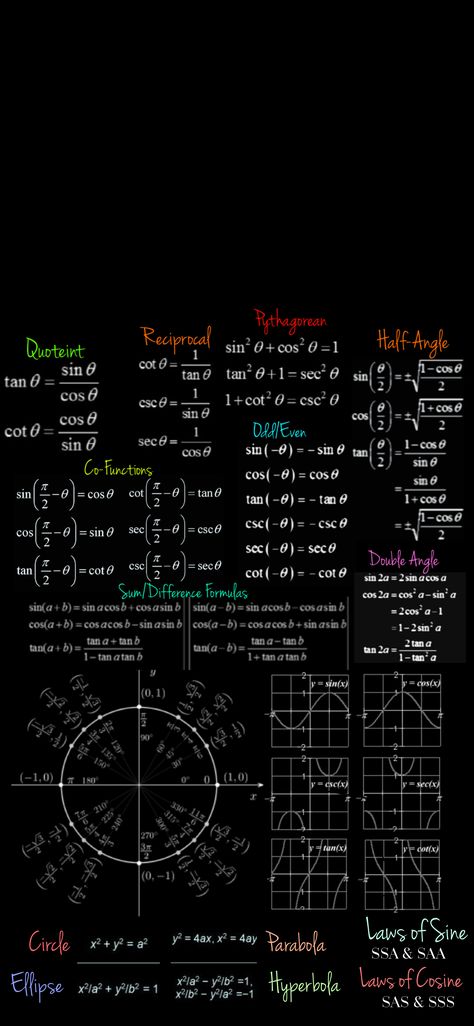 Pythagorean
sin² θ + cos² θ = 1
tan² θ + 1 = sec² θ
1 + cot² θ = csc² θ
Reciprocal
cot θ = 1/tan θ
csc θ = 1/sin θ
sec θ = 1/cos θ
Quoteint
tan θ = sin θ/cos θ
cot θ = cos θ/sin θ
Half-Angle
sin(θ/2) = ±√((1 − cos θ)/2)
cos(θ/2) = ±√((1 + cos θ)/2)
tan(θ/2) = (1 − cos θ)/sin θ
= sin θ/(1 + cos θ)
= ±√((1 − cos θ)/2)
Odd/Even
sin(−θ) = − sin θ
cos(−θ) = cos θ
tan(−θ) = − tan θ
csc(−θ) = − csc θ
sec(−θ) = sec θ
cot(−θ) = − cot θ
Co-Functions
sin(π/2 − θ) = cos θ
cot(π/2 − θ) = tan θ
cos(π/2 − θ) = sin θ
sec(π/2 − θ) = csc θ
tan(π/2 − θ) = cot θ
csc(π/2 − θ) = sec θ
Double Angle
sin 2a = 2 sin a cos a
cos 2a = cos² a − sin² a
= 2cos² a − 1
= 1 − 2 sin² a
tan 2a = 2 tan a/(1 − tan² a)
Sum/Difference Formulas
sin(a + b) = sin a cos b + cos a sin b
cos(a + b) = cos a cos b − sin a sin b
tan(a + b) = (tan a + tan b)/(1 − tan a tan b)
sin(a − b) = sin a cos b − cos a sin b
cos(a − b) = cos a cos b + sin a sin b
tan(a − b) = (tan a − tan b)/(1 + tan a tan b)
y
(0, 1)
π/2
90°
(−1, 0)
π
180°
0°
0
(1, 0)
x
270°
3π/2
(0, −1)
y = sin(x)
y = cos(x)
y = csc(x)
y = sec(x)
y = tan(x)
y = cot(x)
Circle
x² + y² = a²
y² = 4ax, x² = 4ay
Parabola
Laws of Sine
SSA & SAA
Ellipse
x²/a² + y²/b² = 1
x²/a² − y²/b² =1,
x²/b² − y²/a² =−1
Hyperbola
Laws of Cosine
SAS & SSS